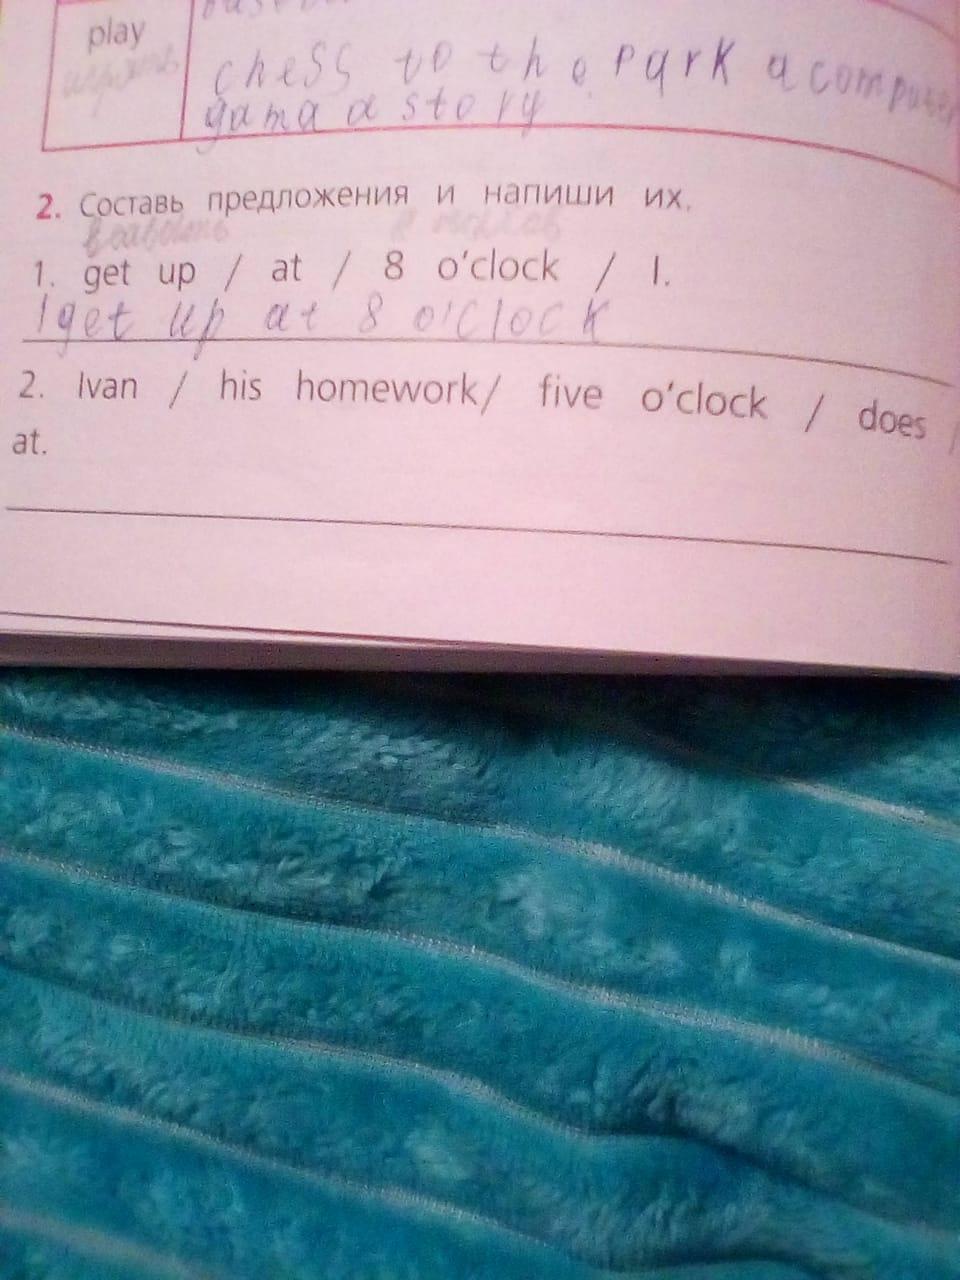 play
играть
chess to the park a computer
gama a story
2. Составь предложения и напиши их.
1. get up / at / 8 o'clock / I.
I get up at 8 o'clock
2. Ivan / his homework/ five o'clock / does /
at.